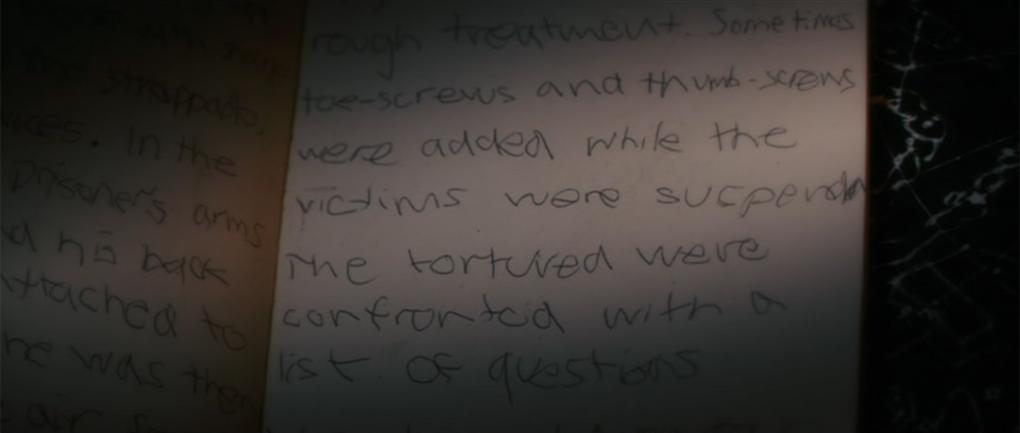 the strappado,
In the
prisoner's arms
his back
attached to
he was then
rough treatment. Sometimes
toe-screws and thumb-screws
were added while the
victims were suspend
The tortured were
confronted with a
list of questions